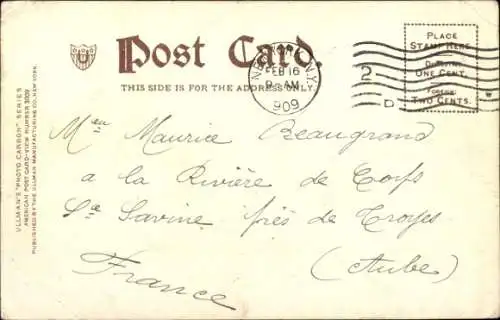 Post Card.
THIS SIDE IS FOR THE ADDRESS ONLY.
NEW YORK, N.Y.
FEB 16
AM
1909
2
D
PLACE
STAMP HERE
DOMESTIC
ONE CENT.
FOREIGN
TWO CENTS.
ULLMAN'S "PHOTO CARBON" SERIES
AMERICAN POST CARD-VIEW NUMBER 3009
PUBLISHED BY THE ULLMAN MANUFACTURING CO. NEW YORK.
Maurice Beaugrand
a la Rivière de Corps
Ste Savine près de Troyes
France (Aube)